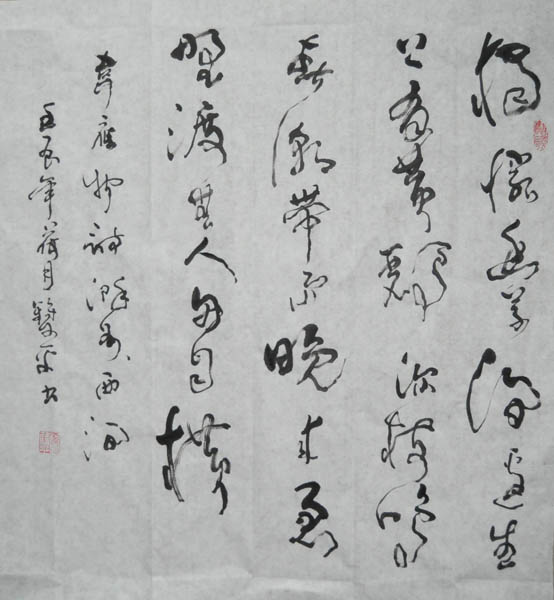 獨憐幽草澗邊生
上有黃鸝深樹鳴
春潮帶雨晚來急
野渡無人舟自橫
韋應物詩滁州西澗
壬辰年荷月書